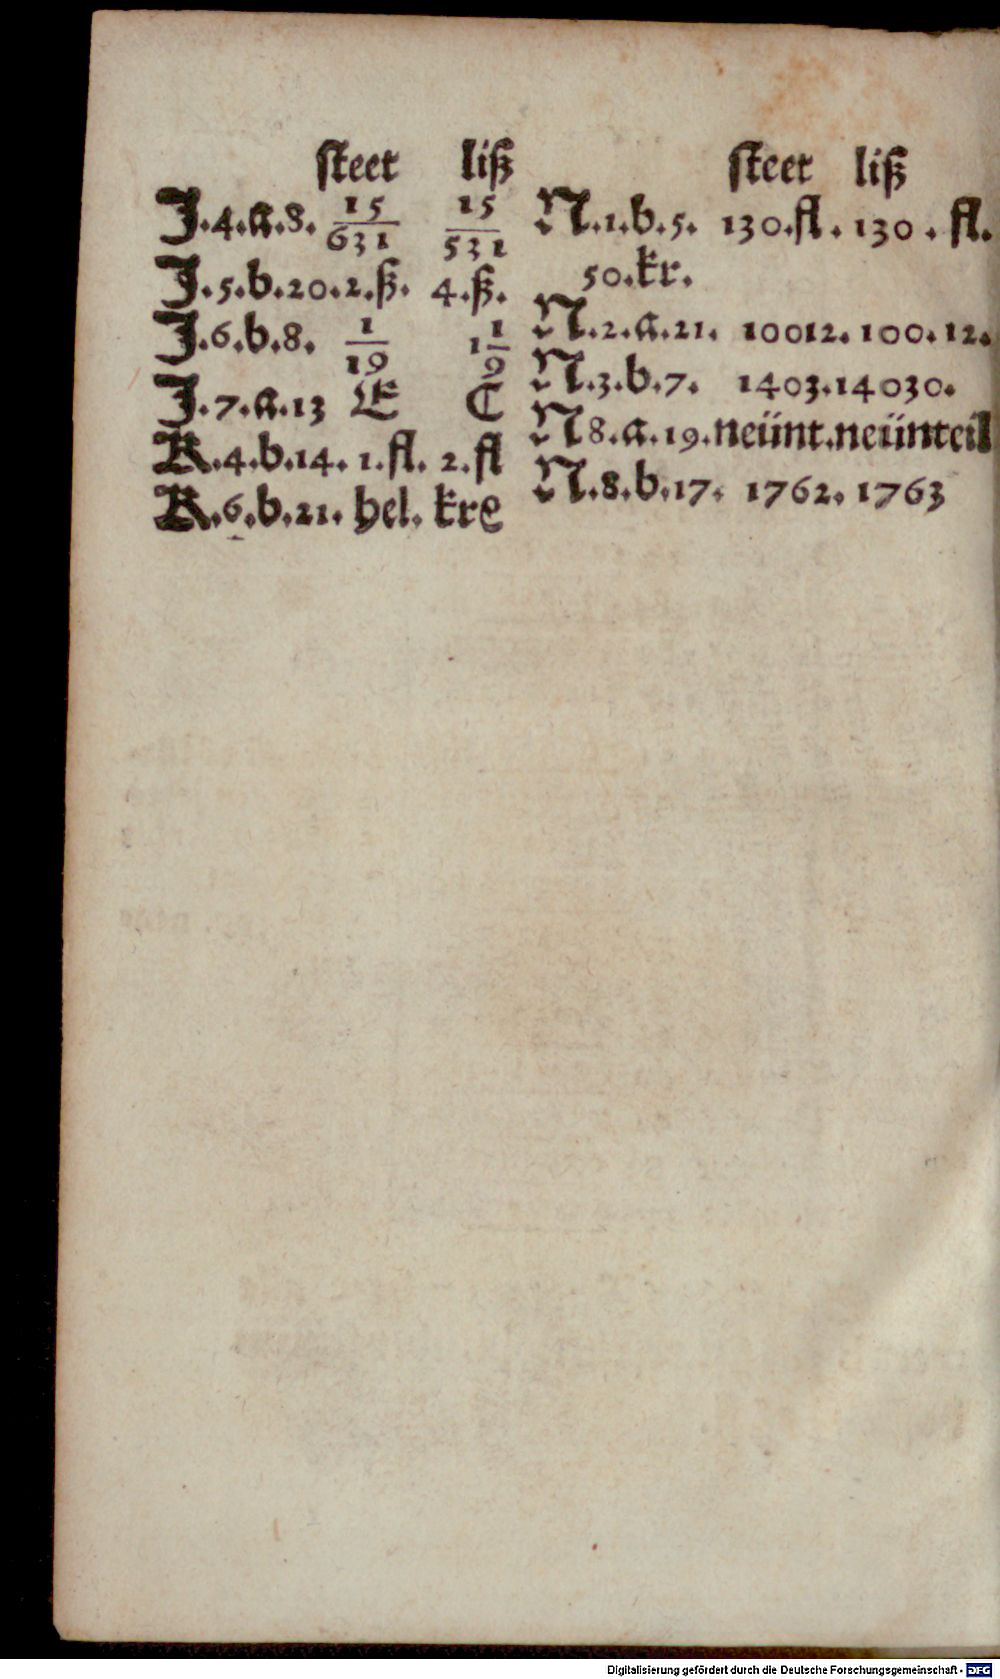 steet liß
J.4.a.8. 15/631 15/531
J.5.b.20.2.ß. 4.ß.
J.6.b.8. 1/19 1 1/9
J.7.a.13 E C
K.4.b.14. 1.fl. 2.fl
K.6.b.21. hel. kre
steet liß
N.1.b.5. 130.fl. 130. fl.
50.kr.
N.2.a.21. 10012. 100.12.
N.3.b.7. 1403.14030.
N8.a.19.neünt.neünteil
N.8.b.17. 1762. 1763
Digitalisierung gefördert durch die Deutsche Forschungsgemeinschaft - DFG